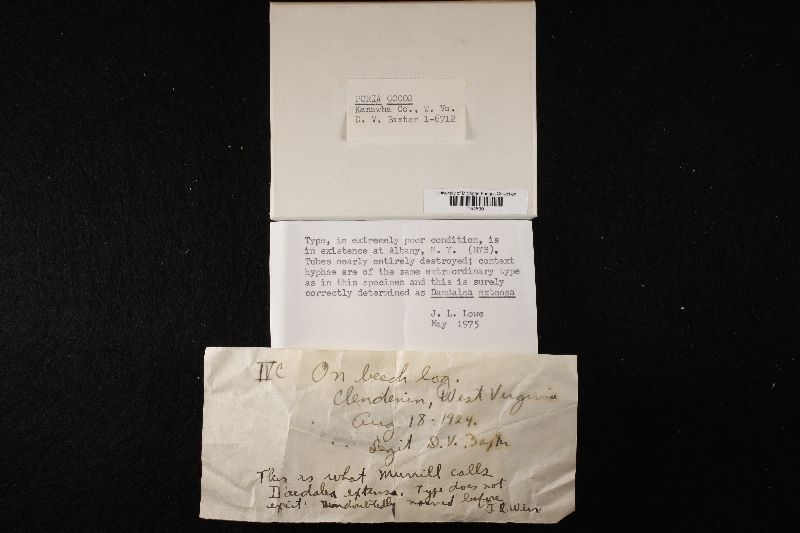 PORIA COCOS
Kanawha Co., W. Va.
D. V. Baxter 1-6712
University of Michigan Fungus Collection
Type, in extremely poor condition, is
in existence at Albany, N. Y. (NYS).
Tubes nearly entirely destroyed; context
hyphae are of the same extraordinary type
as in this specimen and this is surely
correctly determined as Daedalea extensa
J. L. Lowe
May 1975
IVC On beech log.
Clendenin, West Virginia
Aug 18-1924.
Legit D. V. Baxter
This is what Murrill calls
Daedalea extensa. Type does not
exist! Undoubtedly named before
J. R. Weir